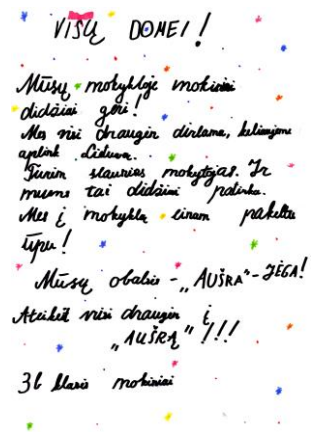 VISŲ DĖMEI!
Mūsų mokykloje mokiniai
didžiai geri!
Mes visi draugia dirbame, keliaujame
aplink Lietuvą.
Turim šaunias mokytojas. Ir
mums tai didžiai patinka.
Mes į mokyklą einam pakeltu
ūpu!
Mūsų obalsis - „AUŠRA" - JĖGA!
Ateikit visi draugia į
„AUŠRĄ" !!!
3b klasės mokiniai